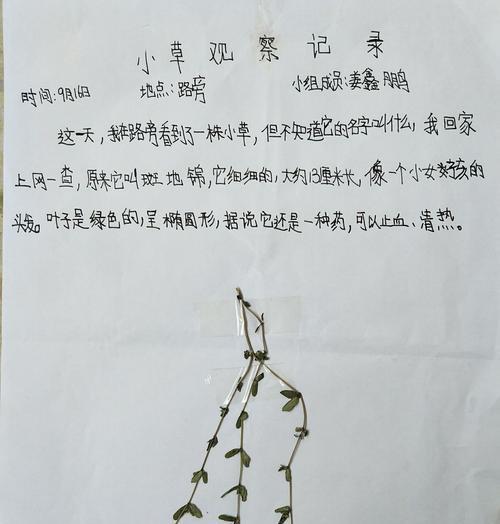 小草观察记录
时间:9月16日 地点:路旁 小组成员:姜鑫 鹏
这一天,我在路旁看到了一株小草,但不知道它的名字叫什么,我回家
上网一查,原来它叫斑地锦,它细细的,大约13厘米长,像一个小女孩的
头发。叶子是绿色的,呈椭圆形,据说它还是一种药,可以止血、清热。